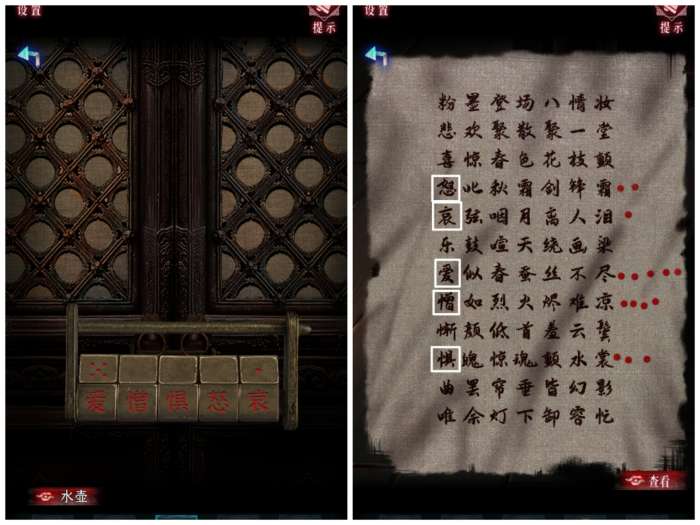 设置
提示
爱憎惧怒哀
水壶
设置
提示
粉墨登场八情妆
悲欢聚散聚一堂
喜惊春色花枝颤
怒叱秋霜剑锋霜
哀弦咽月离人泪
乐鼓喧天绕画梁
爱似春蚕丝不尽
憎如烈火烬难凉
惭颜低首羞云鬓
惧魄惊魂颤水裳
曲罢帘垂皆幻影
唯余灯下卸容忙
查看